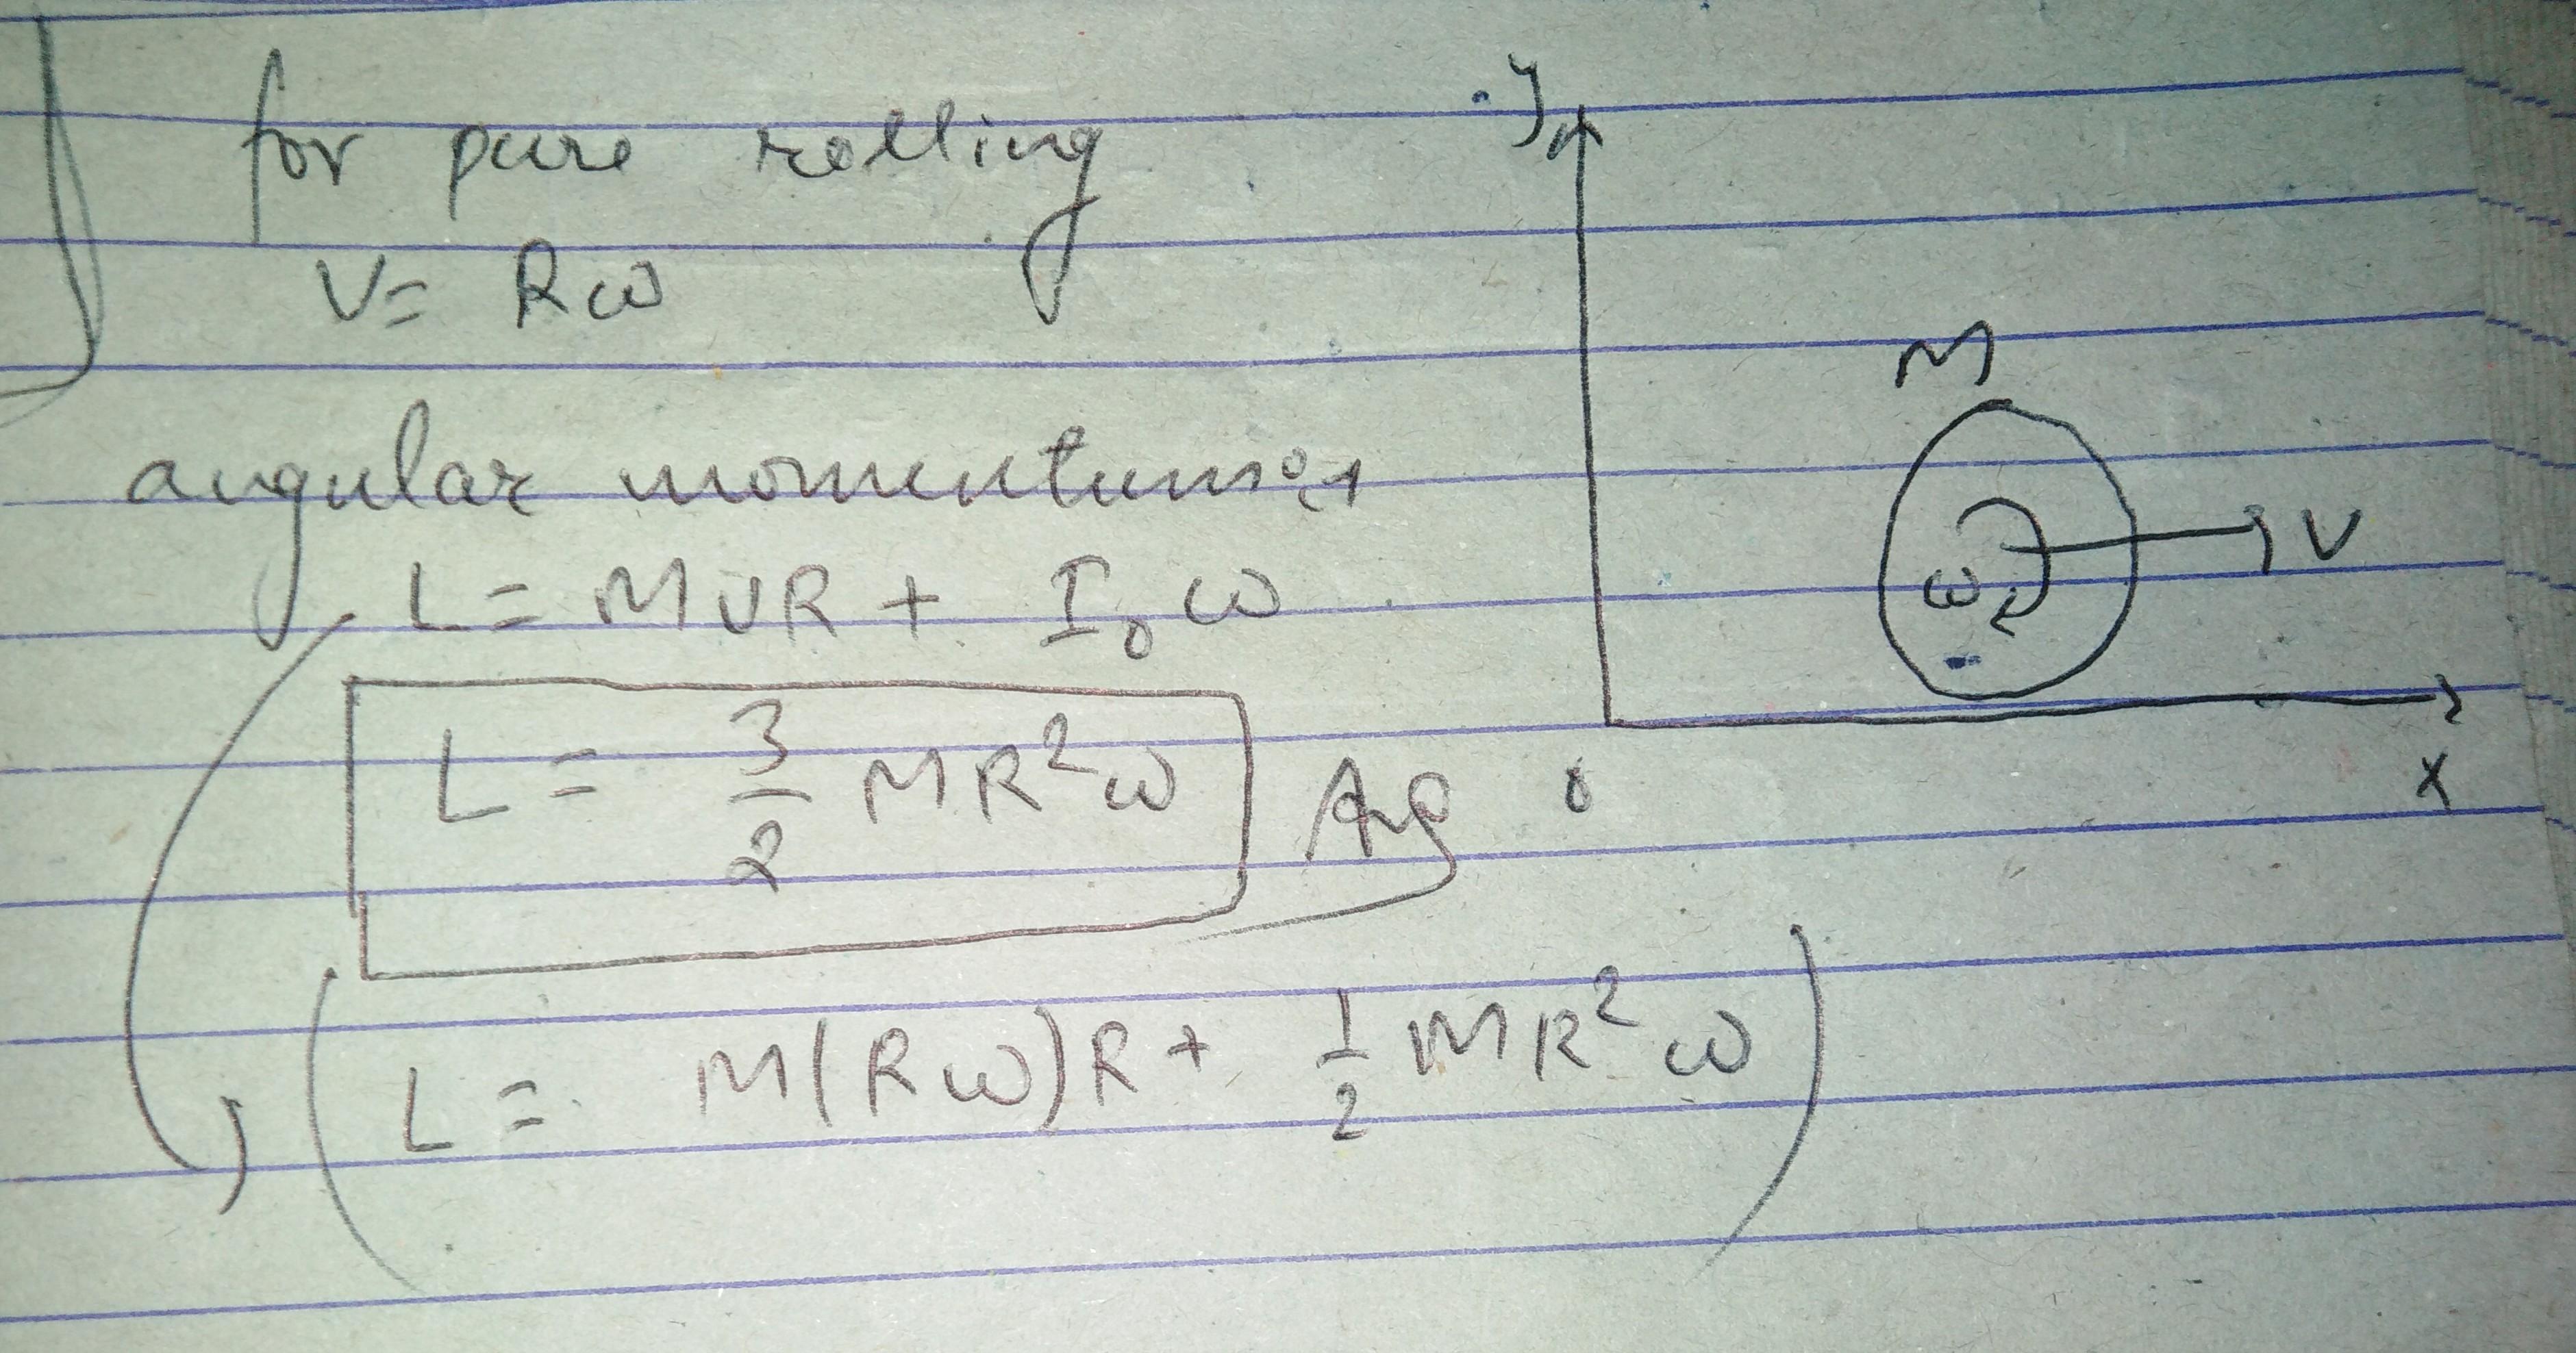 for pure rolling
V = Rω
angular momentum :→
L = MVR + I₀ ω
L = 3/2 MR²ω
L = M(Rω)R + 1/2 MR²ω
y
M
ω
V
0
x